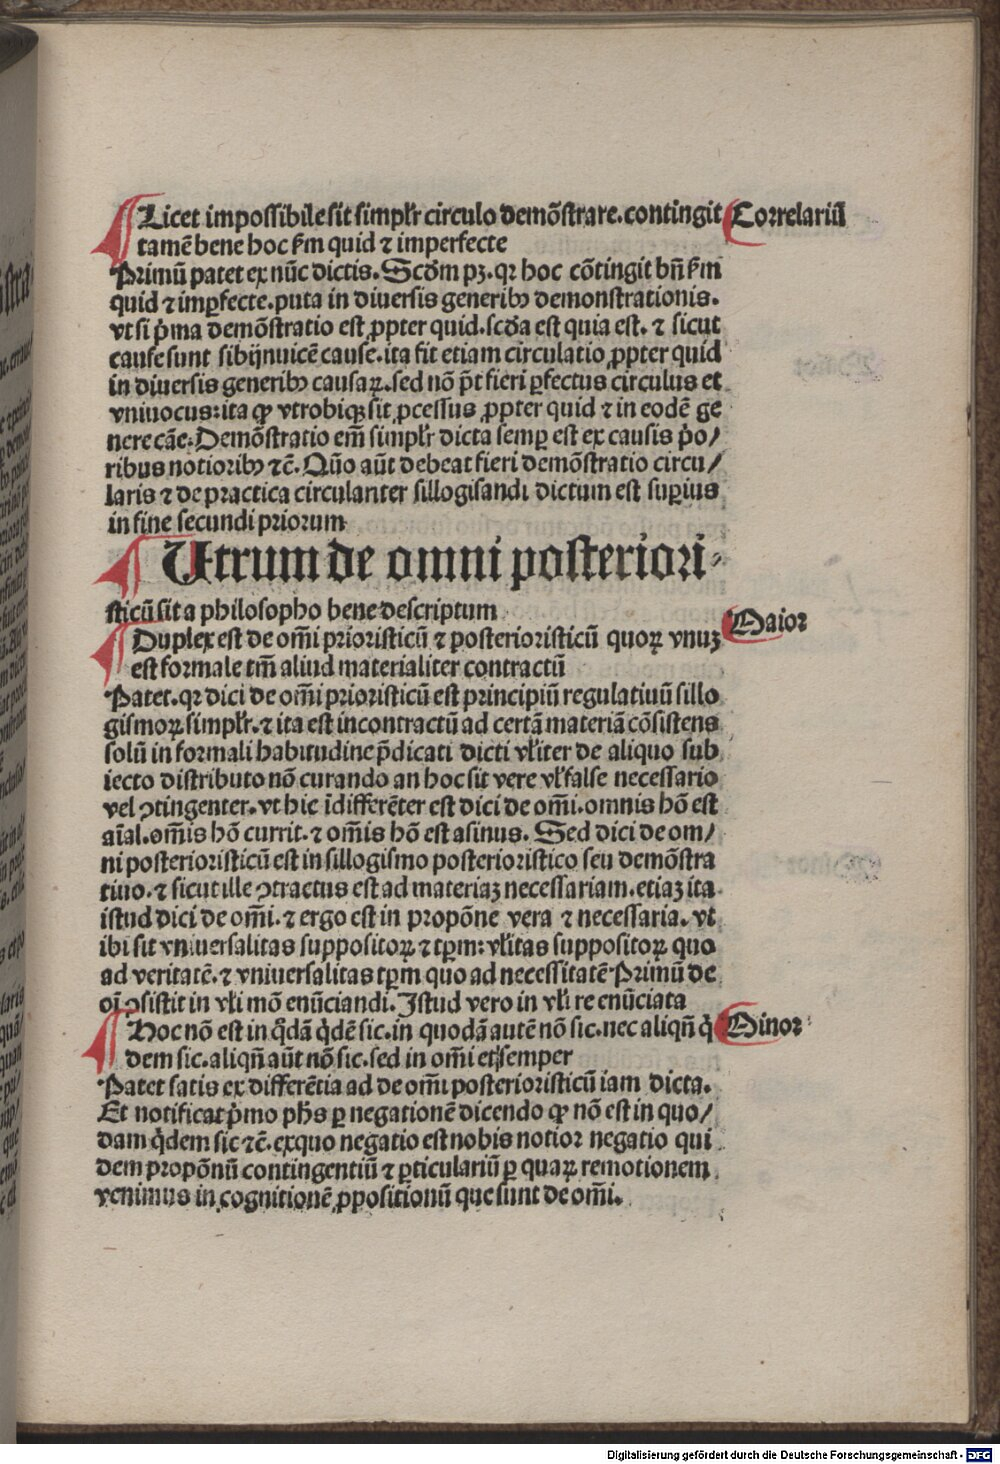 Licet impossibile sit simplr̄ circulo demōstrare. contingit
Correlariū
tamē bene hoc ẜm quid ⁊ imperfecte
Primū patet ex nūc dictis. Scḋm pꝫ. qꝛ hoc cōtingit bn̄ ẜm
quid ⁊ imꝑfecte. puta in diuersis generibꝰ demonstrationis.
vt si p̄ma demōstratio est ꝓpter quid. scḋa est quia est. ⁊ sicut
cause sunt sibijnuicē cause. ita fit etiam circulatio ꝓpter quid
in diuersis generibꝰ causaꝝ. sed nō p̄t fieri ꝑfectus circulus et
vniuocus: ita ꝙ vtrobiqꝫ sit ꝓcessus ꝓpter quid ⁊ in eodē ge
nere cāe. Demōstratio em̄ simplr̄ dicta semꝑ est ex causis p̄o/
ribus notioribꝰ ⁊c̄. Qūo aūt debeat fieri demōstratio circu/
laris ⁊ de practica circulariter sillogisandi dictum est suꝑius
in fine secundi priorum
Utrum de omni posteriori-
sticū sit a philosopho bene descriptum
Duplex est de om̄i prioristicū ⁊ posterioristicū quoꝝ vnuꝫ
Maior
est formale tm̄ aliud materialiter contractū
Patet. qꝛ dici de om̄i prioristicū est principiū regulatiuū sillo
gismoꝝ simplr̄. ⁊ ita est incontractū ad certā materiā cōsistens
solū in formali habitudine p̄dicati dicti vl̄iter de aliquo sub
iecto distributo nō curando an hoc sit vere vl̄ false necessario
vel ꝯtingenter. vt hic īdifferēter est dici de om̄i. omnis hō est
aīal. om̄is hō currit. ⁊ om̄is hō est asinus. Sed dici de om/
ni posterioristicū est in sillogismo posterioristico seu demōstra
tiuo. ⁊ sicut ille ꝯtractus est ad materiaꝫ necessariam. etiaꝫ ita
istud dici de om̄i. ⁊ ergo est in propōne vera ⁊ necessaria. vt
ibi sit vniuersalitas suppositoꝝ ⁊ tꝑm: vl̄itas suppositoꝝ quo
ad veritatē. ⁊ vniuersalitas tꝑm quo ad necessitatē Primū de
oī ꝯsistit in vl̄i mō enūciandi. Istud vero in vl̄i re enūciata
Hoc nō est in q̇dā q̇dē sic. in quodā autē nō sic. nec aliqn̄ q̇
Minor
dem sic. aliqn̄ aūt nō sic. sed in om̄i et semper
Patet satis ex differētia ad de om̄i posterioristicū iam dicta.
Et notificat p̄mo ph̄s ꝑ negationē dicendo ꝙ nō est in quo/
dam q̇dem sic ⁊c̄. exquo negatio est nobis notior negatio qui
dem propōnū contingentiū ⁊ ꝑticulariū ꝑ quaꝝ remotionem
venimus in cognitionē ꝓpositionū que sunt de om̄i.
Digitalisierung gefördert durch die Deutsche Forschungsgemeinschaft - DFG